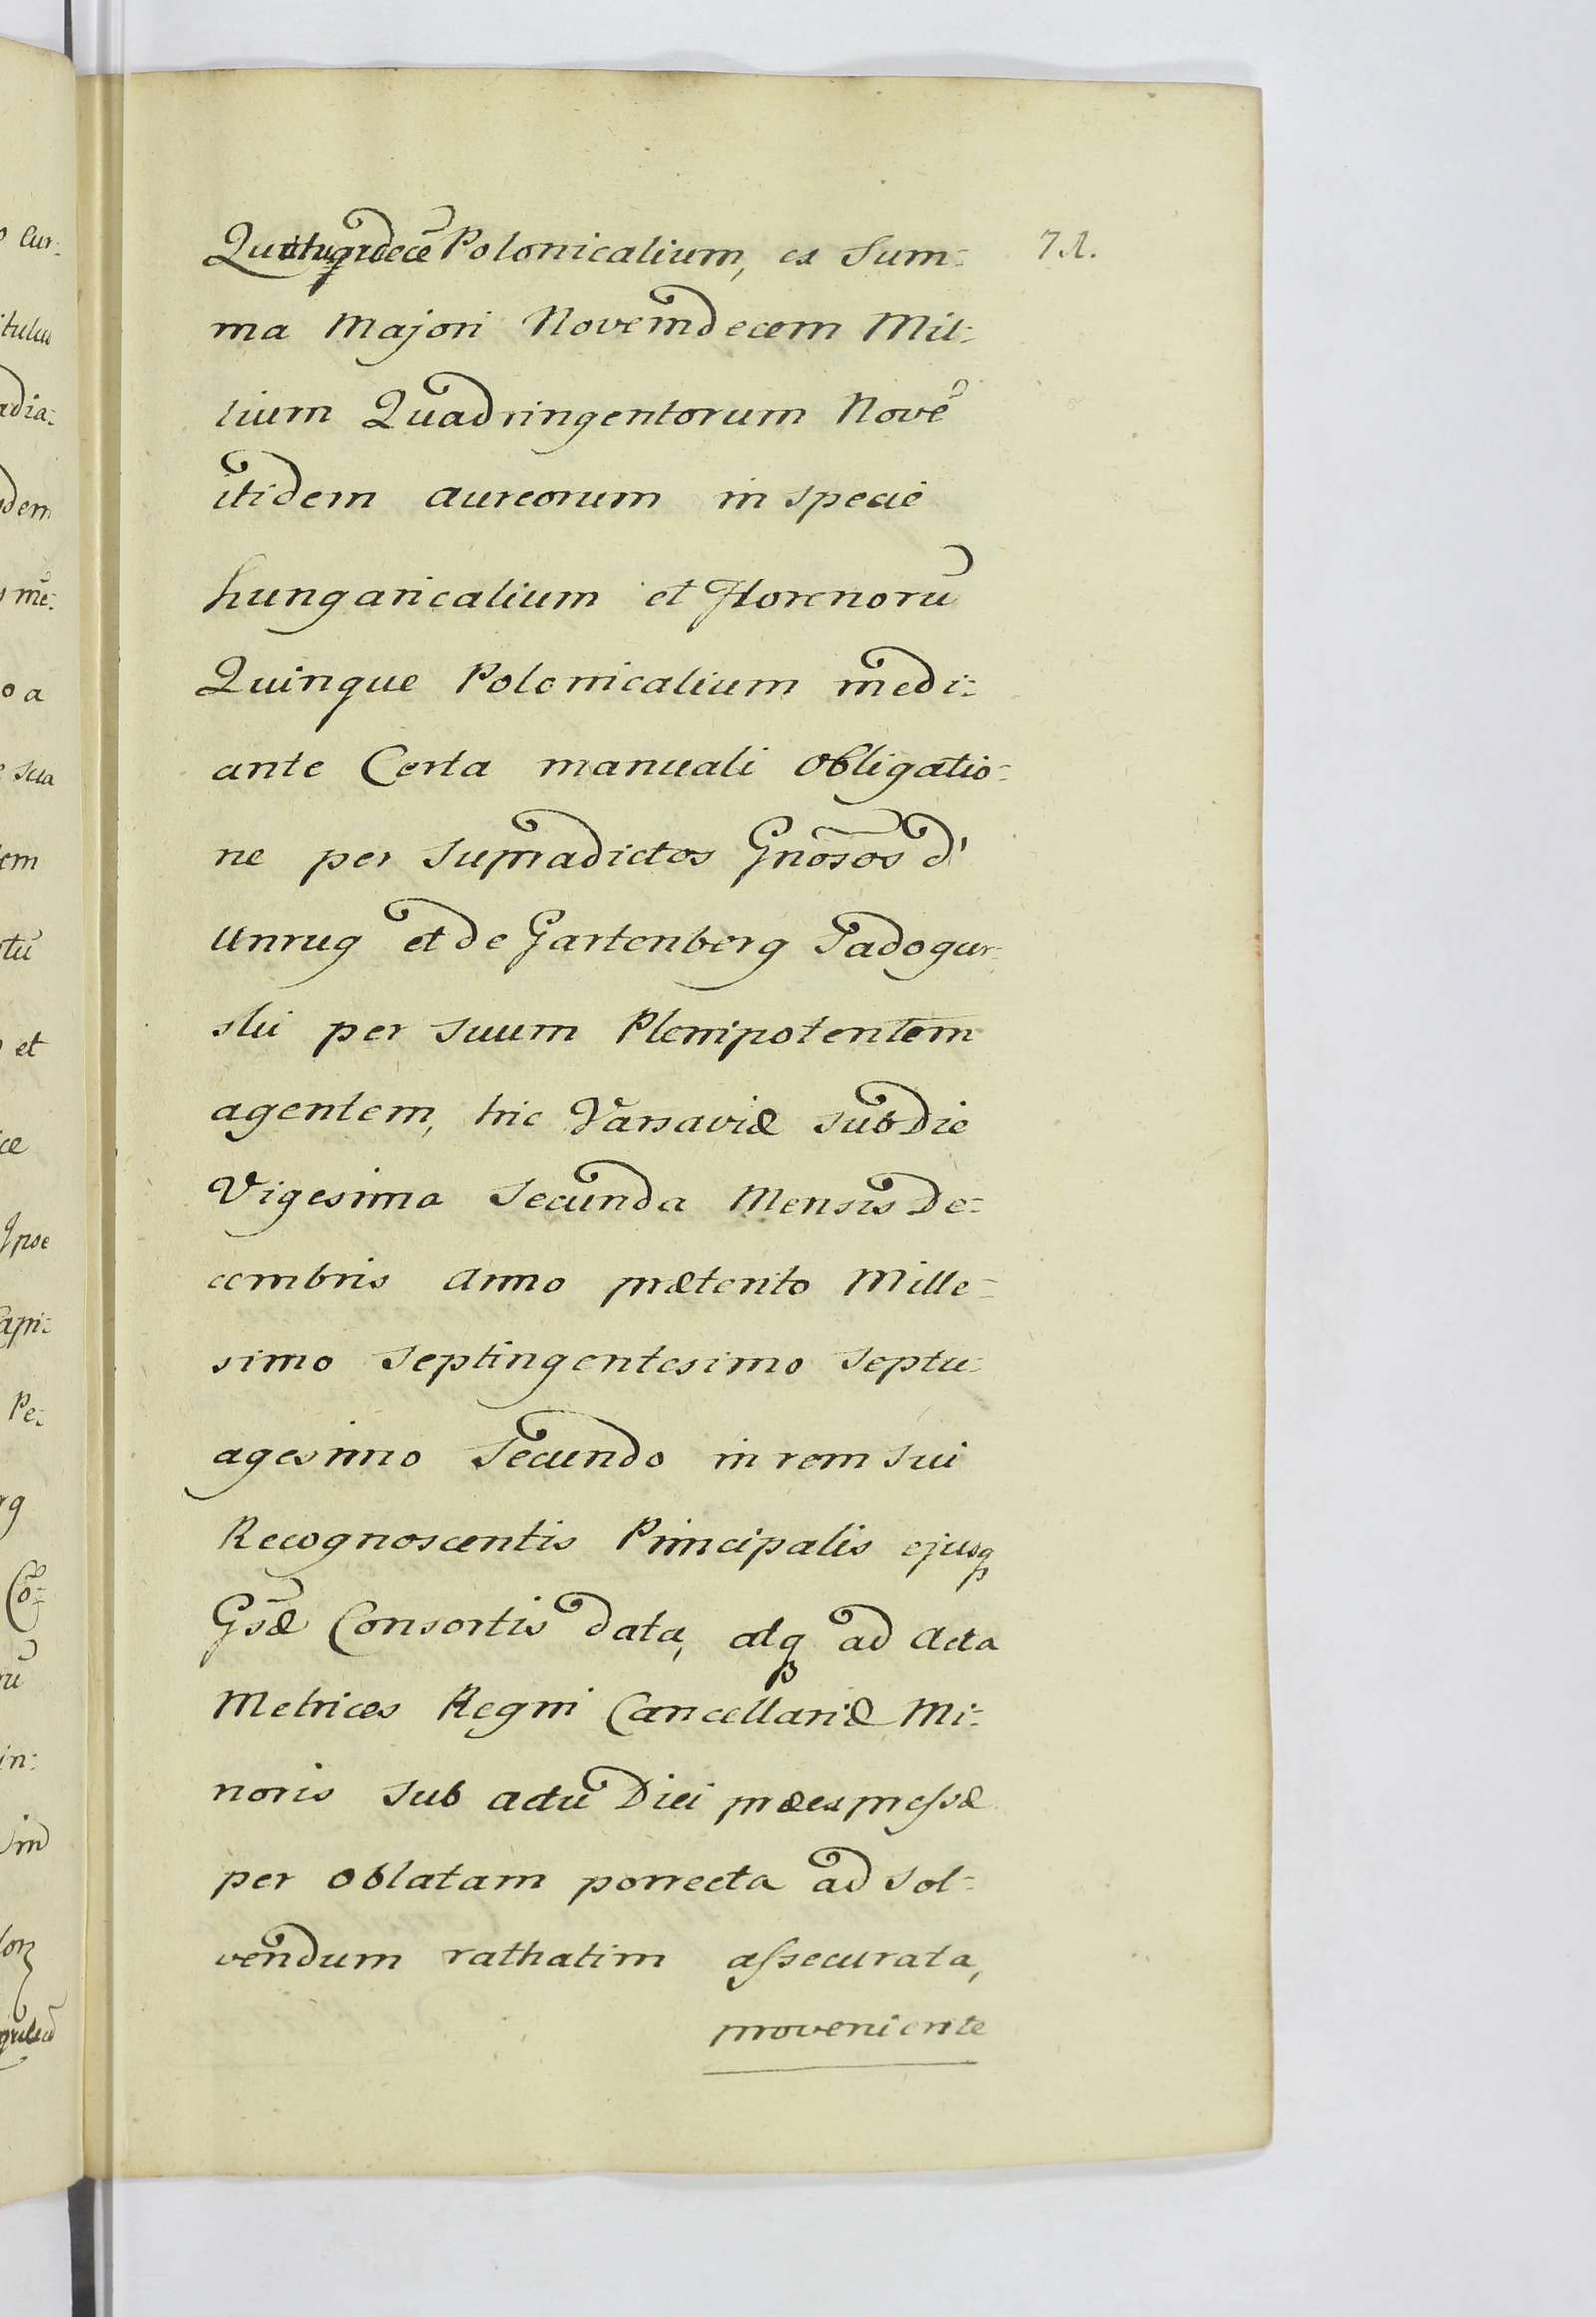 Quatuordecē Polonicalium, ex Sum: 71.
ma Majori Novemdecem Mil:
lium Quadringentorum Novē
itidem aureorum in specie
hungaricalium et Florenorū
Quinque Polonicalium medi:
ante Certa manuali obligatio:
ne per supradictos Gnōsos d'
Unrug et de Gartenberg Sadogur
ski per suum Plenipotentem
agentem, hic Varsaviæ sub Die
Vigesima Secunda Mensis De:
cembris Anno præterito Mille:
simo Septingentesimo Septu:
agesimo Secundo in rem sui
Recognoscentis Principalis ejusq
Gsæ Consortis data, atq ad Acta
Metrices Regni Cancellariæ Mi:
noris sub actu Diei præexpressæ
per oblatam porrecta ad sol:
vendum rathatim assecurata,
proveniente